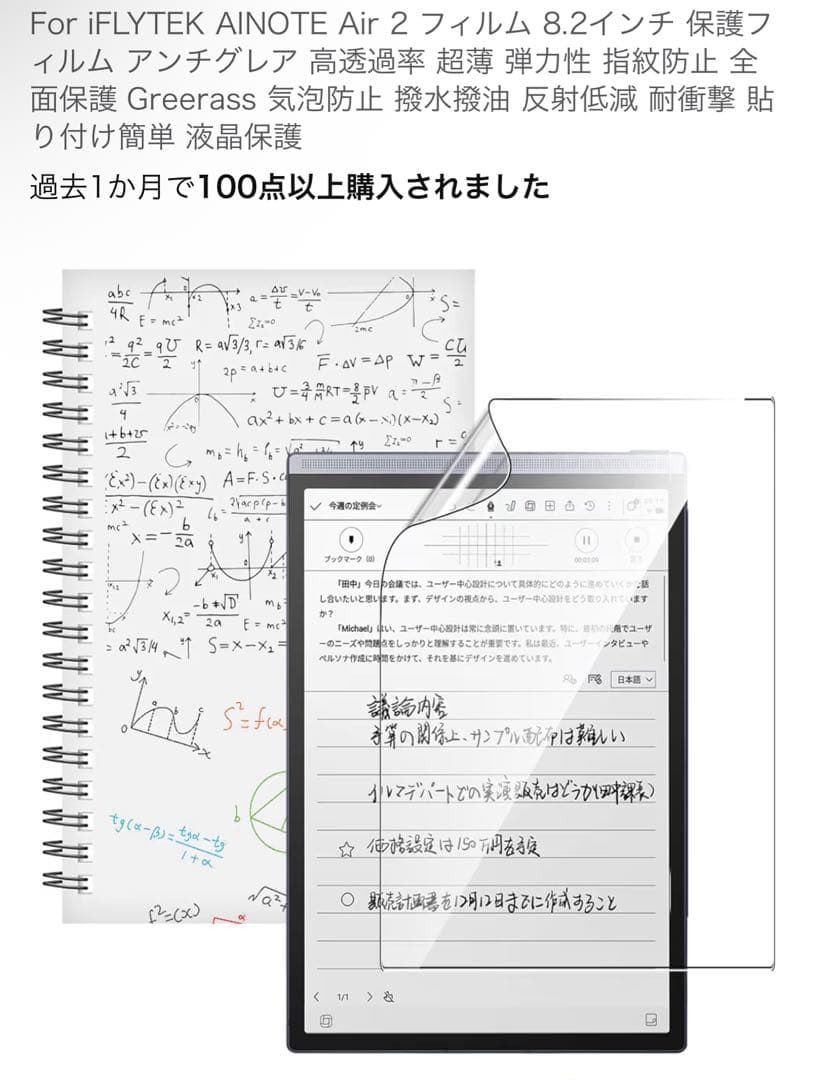 For iFLYTEK AINOTE Air 2 フィルム 8.2インチ 保護フ
ィルム アンチグレア 高透過率 超薄 弾力性 指紋防止 全
面保護 Greerass 気泡防止 撥水撥油 反射低減 耐衝撃 貼
り付け簡単 液晶保護
過去1か月で100点以上購入されました
abc
4R
E = mc²
x₁
x2
x3
a = Δv/t = v-v₀/t
ΣIₖ=0
2mc
S=
R = a√3/3, r = a√3/6
2p = a+b+c
F·ΔV=ΔP
W =
a²√3
4
ax²+bx+c=a(x-x₁)(x-x₂)
A=F·S·c
x²-(Ɛx)²
mc²
x=-b/2a
X₁,₂= -b±√D/2a
E = mc²
= a²√3/4
S=X-X₂=
S²=f(α
b
tg(α-β)=tgα-tg
1+α
f²=(x)
√a²
今週の定例会
ブックマーク (0)
00:01:09
「田中」今日の会議では、ユーザー中心設計について具体的にどのように進めていくかを話
し合いたいと思います。まず、デザインの視点から、ユーザー中心設計をどう取り入れています
か？
「Michael」はい、ユーザー中心設計は常に念頭に置いています。特に、最初の段階でユーザ
ーのニーズや問題点をしっかりと理解することが重要です。私は最近、ユーザーインタビューや
ペルソナ作成に時間をかけて、それを基にデザインを進めています。
日本語
議論内容
予算の関係上、サンプル配布は難しい
イルマデパートでの実演販売はどうか(田中課長)
価格設定は150万円を予定
販売計画書を12月12日までに作成すること
1/1